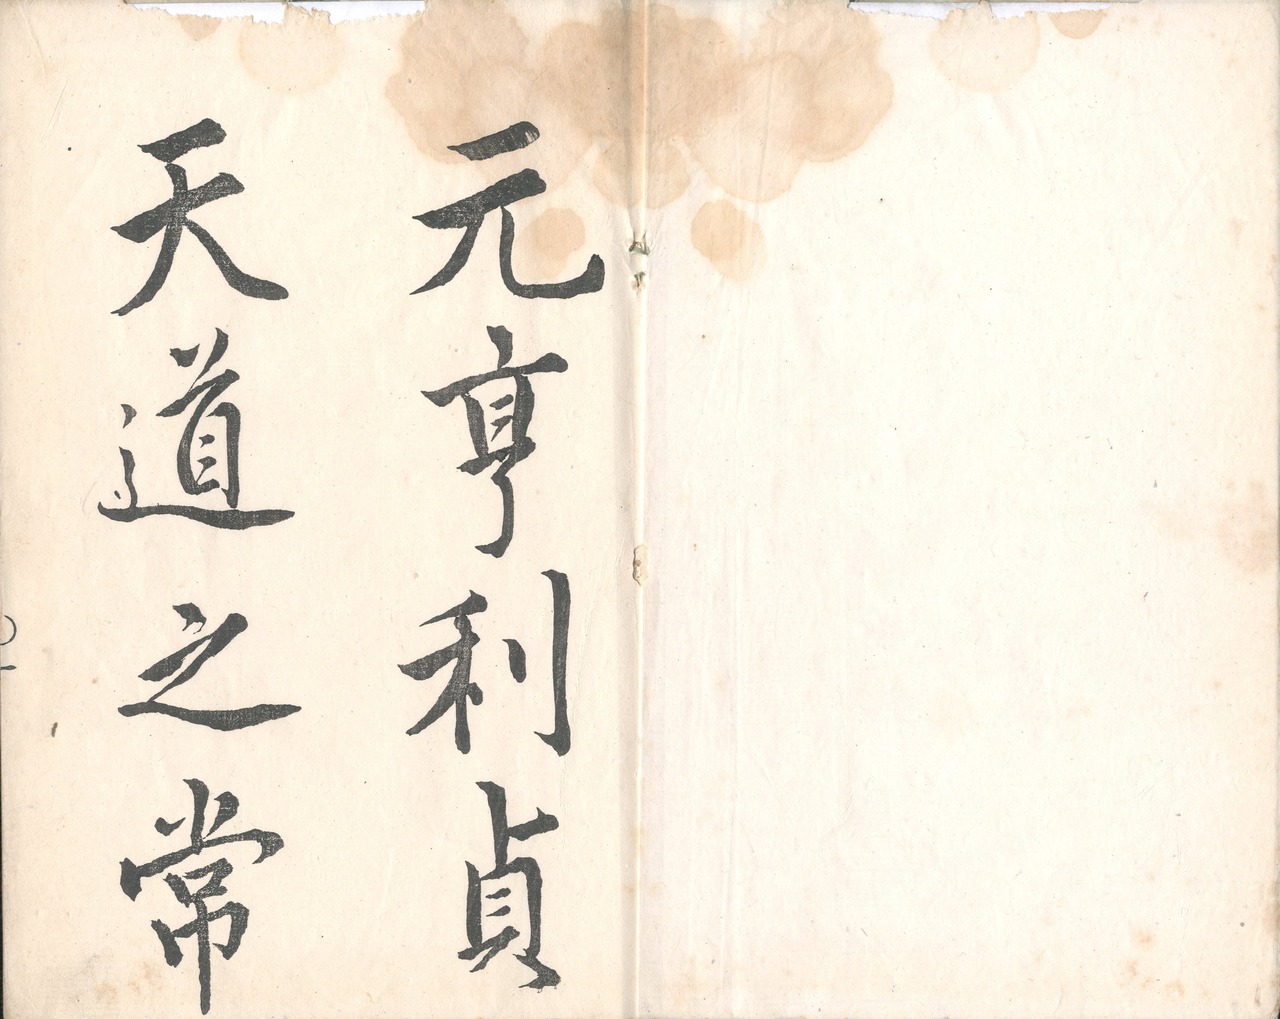 元亨利貞
天道之常